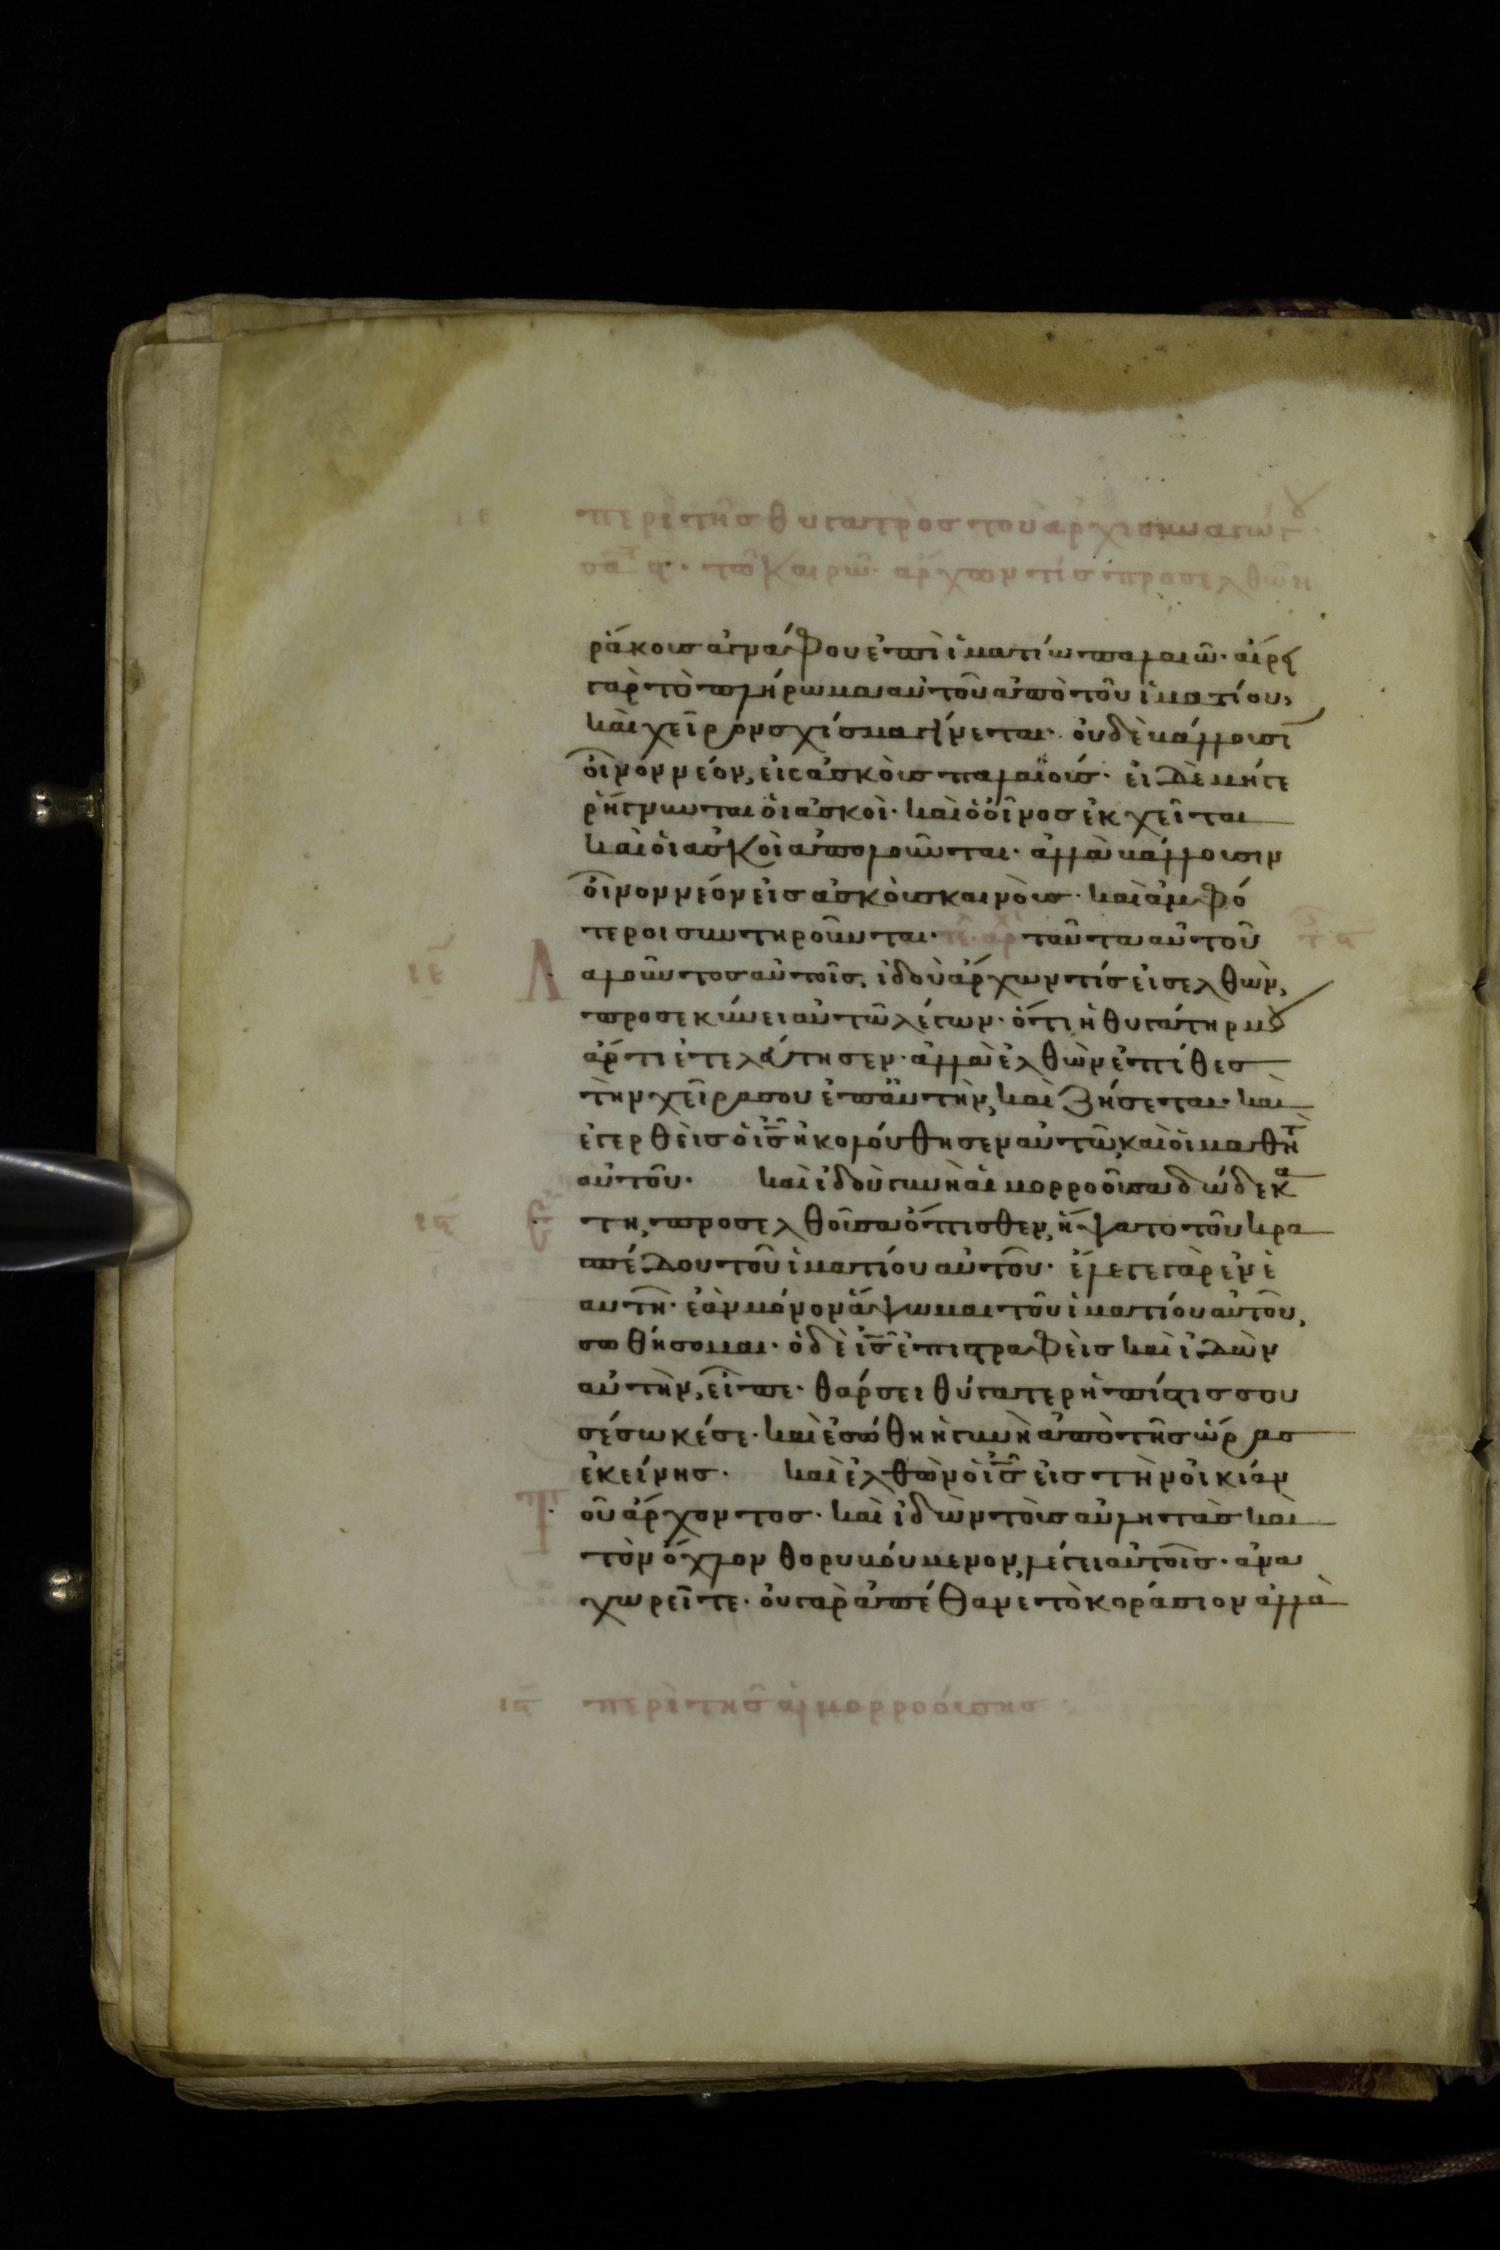 ιε περὶ τῆς θυγατρὸς τοῦ ἀρχισυναγώγου
τῶ καιρῶ· ἄρχων τίς προσελθὼν
ῥάκους ἀγνάφου ἐπὶ ἱματίω παλαιῶ· αἴρει
γὰρ τὸ πλήρωμα αὐτοῦ ἀπὸ τοῦ ἱματίου,
καὶ χεῖρον σχίσμα γίνεται· οὐδὲ βάλλουσι
οἶνον νέον, εἰς ἀσκοὺς παλαιούς· εἰ δὲ μήγε
ῥήγνυνται ὁι ἀσκοὶ· καὶ ὁ οἶνος ἐκχεῖται
καὶ ὁι ἀσκοὶ ἀπολοῦνται· ἀλλὰ βάλλουσιν
οἶνον νέον εἰς ἀσκοὺς καινοὺς· καὶ ἀμφό
τεροι συντηροῦνται· τέ· ἀρχ ταῦτα αὐτοῦ
ιε Λ αλοῦντος αὐτοῖς, ἰδοὺ ἄρχων τίς εἰσελθὼν,
προσεκύνει αὐτῶ λέγων· ὅτι ἡ θυγάτηρ μου
ἄρτι ἐτελεύτησεν· ἀλλὰ ἐλθὼν ἐπίθες
τὴν χεῖρα σου ἐπ' αὐτὴν, καὶ ζήσεται· καὶ
ἐγερθεὶς ὁ ις ἠκολούθησεν αὐτῶ, καὶ ὁι μαθητ
αὐτοῦ· καὶ ἰδοὺ γυνὴ αἱμορροοῦσα δώδεκα
τη, προσελθοῦσα ὄπισθεν, ἥψατο τοῦ κρα
σπέδου τοῦ ἱματίου αὐτοῦ· ἔλεγε γὰρ ἐν ἑ
αυτῆ· ἐὰν μόνον ἅψωμαι τοῦ ἱματίου αὐτοῦ,
σωθήσομαι· ὁ δὲ ις ἐπιστραφεὶς καὶ ἰδὼν
αὐτὴν, εἶπε· θάρσει θύγατερ ἡ πίστις σου
σέσωκέ σε· καὶ ἐσώθη ἡ γυνὴ ἀπὸ τῆς ὥρας
ἐκείνης· καὶ ἐλθὼν ὁ ις εἰς τὴν οἰκίαν
Τ οῦ ἄρχοντος· καὶ ἰδὼν τοὺς αὐλητὰς καὶ
τὸν ὄχλον θορυβούμενον, λέγει αὐτοῖς· ἀνα
χωρεῖτε· οὐ γὰρ ἀπέθανε τὸ κοράσιον ἀλλὰ
ις περὶ τῆς αἱμορροούσης